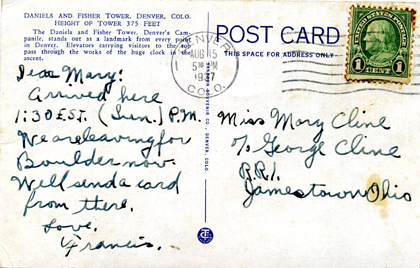 DANIELS AND FISHER TOWER, DENVER, COLO.
HEIGHT OF TOWER 375 FEET
The Daniels and Fisher Tower, Denver's Cam-
panile, stands out as a landmark from every point
in Denver. Elevators carrying visitors to the top
pass through the works of the huge clock in the
ascent.
Dear Mary:
Arrived here
1:30 EST. (Sun.) P.M.
We are leaving for
Boulder now.
Will send a card
from there.
Love.
Francis.
POST CARD
THIS SPACE FOR ADDRESS ONLY
DENVER
AUG 15
5 PM
1937
COLO.
1
CENT
1
Miss Mary Cline
c/o George Cline
R.R.1.
Jamestown Ohio